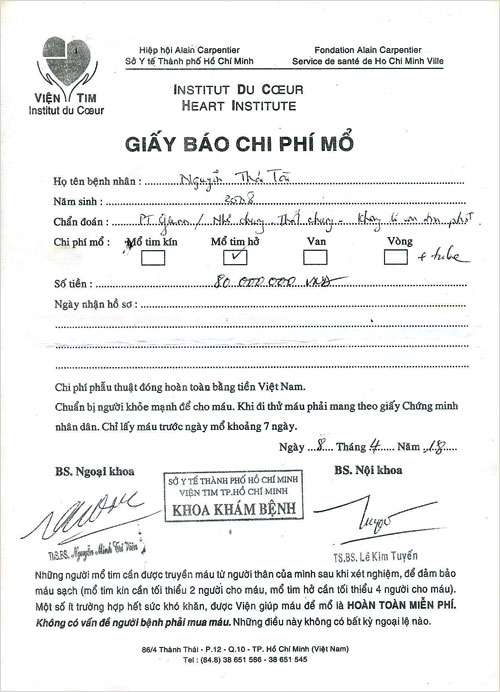 VIỆN TIM
Institut du Cœur
Hiệp hội Alain Carpentier
Sở Y tế Thành phố Hồ Chí Minh
Fondation Alain Carpentier
Service de santé de Ho Chi Minh Ville
INSTITUT DU CŒUR
HEART INSTITUTE
GIẤY BÁO CHI PHÍ MỔ
Họ tên bệnh nhân : Nguyễn
Năm sinh : 2008
Chẩn đoán :
Chi phí mổ : Mổ tim kín Mổ tim hở Van Vòng
+ tube
Số tiền : 80 000 000 VNĐ
Ngày nhận hồ sơ :
Chi phí phẫu thuật đóng hoàn toàn bằng tiền Việt Nam.
Chuẩn bị người khỏe mạnh để cho máu. Khi đi thử máu phải mang theo giấy Chứng minh
nhân dân. Chỉ lấy máu trước ngày mổ khoảng 7 ngày.
Ngày 8 Tháng 4 Năm 18
BS. Ngoại khoa
BS. Nội khoa
SỞ Y TẾ THÀNH PHỐ HỒ CHÍ MINH
VIỆN TIM TP.HỒ CHÍ MINH
KHOA KHÁM BỆNH
ThS.BS. Nguyễn Minh Trí Viên
TS.BS. Lê Kim Tuyến
Những người mổ tim cần được truyền máu từ người thân của mình sau khi xét nghiệm, để đảm bảo
máu sạch (mổ tim kín cần tối thiểu 2 người cho máu, mổ tim hở cần tối thiểu 4 người cho máu).
Một số ít trường hợp hết sức khó khăn, được Viện giúp máu để mổ là HOÀN TOÀN MIỄN PHÍ.
Không có vấn đề người bệnh phải mua máu. Những điều này không có bất kỳ ngoại lệ nào.
86/4 Thành Thái - P.12 - Q.10 - TP. Hồ Chí Minh (Việt Nam)
Tel : (84.8) 38 651 586 - 38 651 545